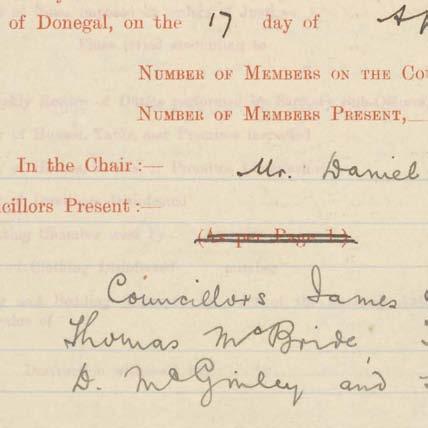 of Donegal, on the 17 day of Ap
Number of Members on the Cou
Number of Members Present,
In the Chair:— Mr. Daniel
ncillors Present:—
(As per Page 1.)
Councillors James
Thomas McBride,
D. McGinley and